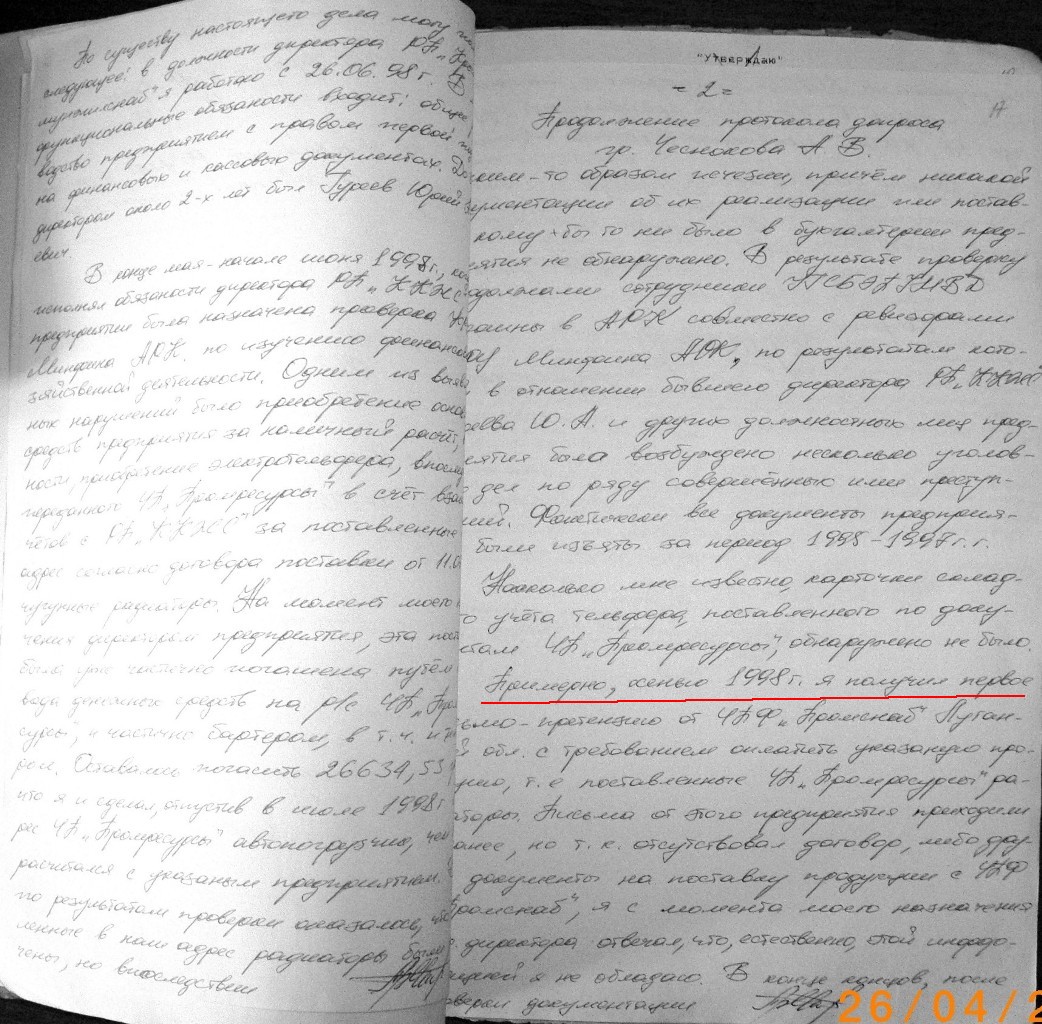 По существу настоящего дела могу
следующее: в должности директора РП „
я работаю с 26.06.98 г. В
функциональные обязаности входит: общее
водство предприятием с правом первой
на финансовых и кассовых документах. До
директором около 2-х лет был Гуреев Юрий
евич.
В конце мая - начале июня 1998 г.,
исполнял обязаности директора РП „ККЖС
предприятии была назначена проверка
Минфина АРК. по изучению финансово
зяйственной деятельности. Одним из выяв
ных нарушений было приобретение основ
средств предприятия за наличный расчёт,
ности приобретение электротельфера, впосл
переданного ЧП „Промресурсы" в счёт вза
чётов с РП „ККЖС" за поставленные
адрес согласно договора поставки от 11.0
чугунные радиаторы. На момент моего
чения директором предприятия, эта пост
была уже частично погашена путём
вода денежных средств на р/с ЧП „Пром
сурсы", и частично бартером, в т. ч. и
ром. Оставались погасить 26634,53
что я и сделал, отпустив в июле 1998 г
рес ЧП „Промресурсы" автопогрузчик, чем
расчитался с указаным предприятием.
по результатам проверки оказалось, что
ленные в наш адрес радиаторы были
чены, но впоследствии
"Утверждаю"
= 2 =
17
Продолжение протокола допроса
гр. Чеснокова А. В.
каким-то образом исчезли, причём никакой
кументации об их реализации или постав-
кому бы то ни было в бухгалтерии пред-
ятия не обнаружено. В результате проверку
продолжали сотрудники ГСБЭП ГНВД
раины в АРК совместно с ревизорами
Минфина АРК, по результатам кото-
в отношении бывшего директора РП „ККЖС"
еева Ю. А. и других должностных лиц пред-
ятия было возбуждено несколько уголов-
дел по ряду совершённых ими преступ-
ний. Фактически все документы предприя-
были изъяты за период 1995-1997 г. г.
Насколько мне известно, карточки склад-
о учёта тельфера, поставленного по доку-
нтам ЧП „Промресурсы", обнаружено не было.
Примерно, осенью 1998 г. я получил первое
сьмо - претензию от ЧПФ „Промснаб" Луган-
й обл. с требованием оплатить указаную про-
цию, т. е поставленные ЧП „Промресурсы" ра-
аторы. Письма от этого предприятия приходили
ранее, но т. к. отсутствовал договор, либо дру-
документы на поставку продукции с ЧПФ
Промснаб", я с момента моего назначения
директора отвечал, что, естественно, этой инфор-
цией я не обладаю. В конце концов, после
верки документации
26/04/2